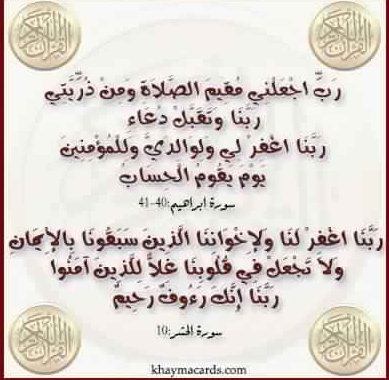 رَبِّ اجْعَلْنِي مُقِيمَ الصَّلَاةِ وَمِنْ ذُرِّيَّتِي
رَبَّنَا وَتَقَبَّلْ دُعَاءِ
رَبَّنَا اغْفِرْ لِي وَلِوَالِدَيَّ وَلِلْمُؤْمِنِينَ
يَوْمَ يَقُومُ الْحِسَابُ
سورة ابراهيم:40-41
رَبَّنَا اغْفِرْ لَنَا وَلِإِخْوَانِنَا الَّذِينَ سَبَقُونَا بِالْإِيمَانِ
وَلَا تَجْعَلْ فِي قُلُوبِنَا غِلًّا لِلَّذِينَ آمَنُوا
رَبَّنَا إِنَّكَ رَءُوفٌ رَحِيمٌ
سورة الحشر:10
khaymacards.com